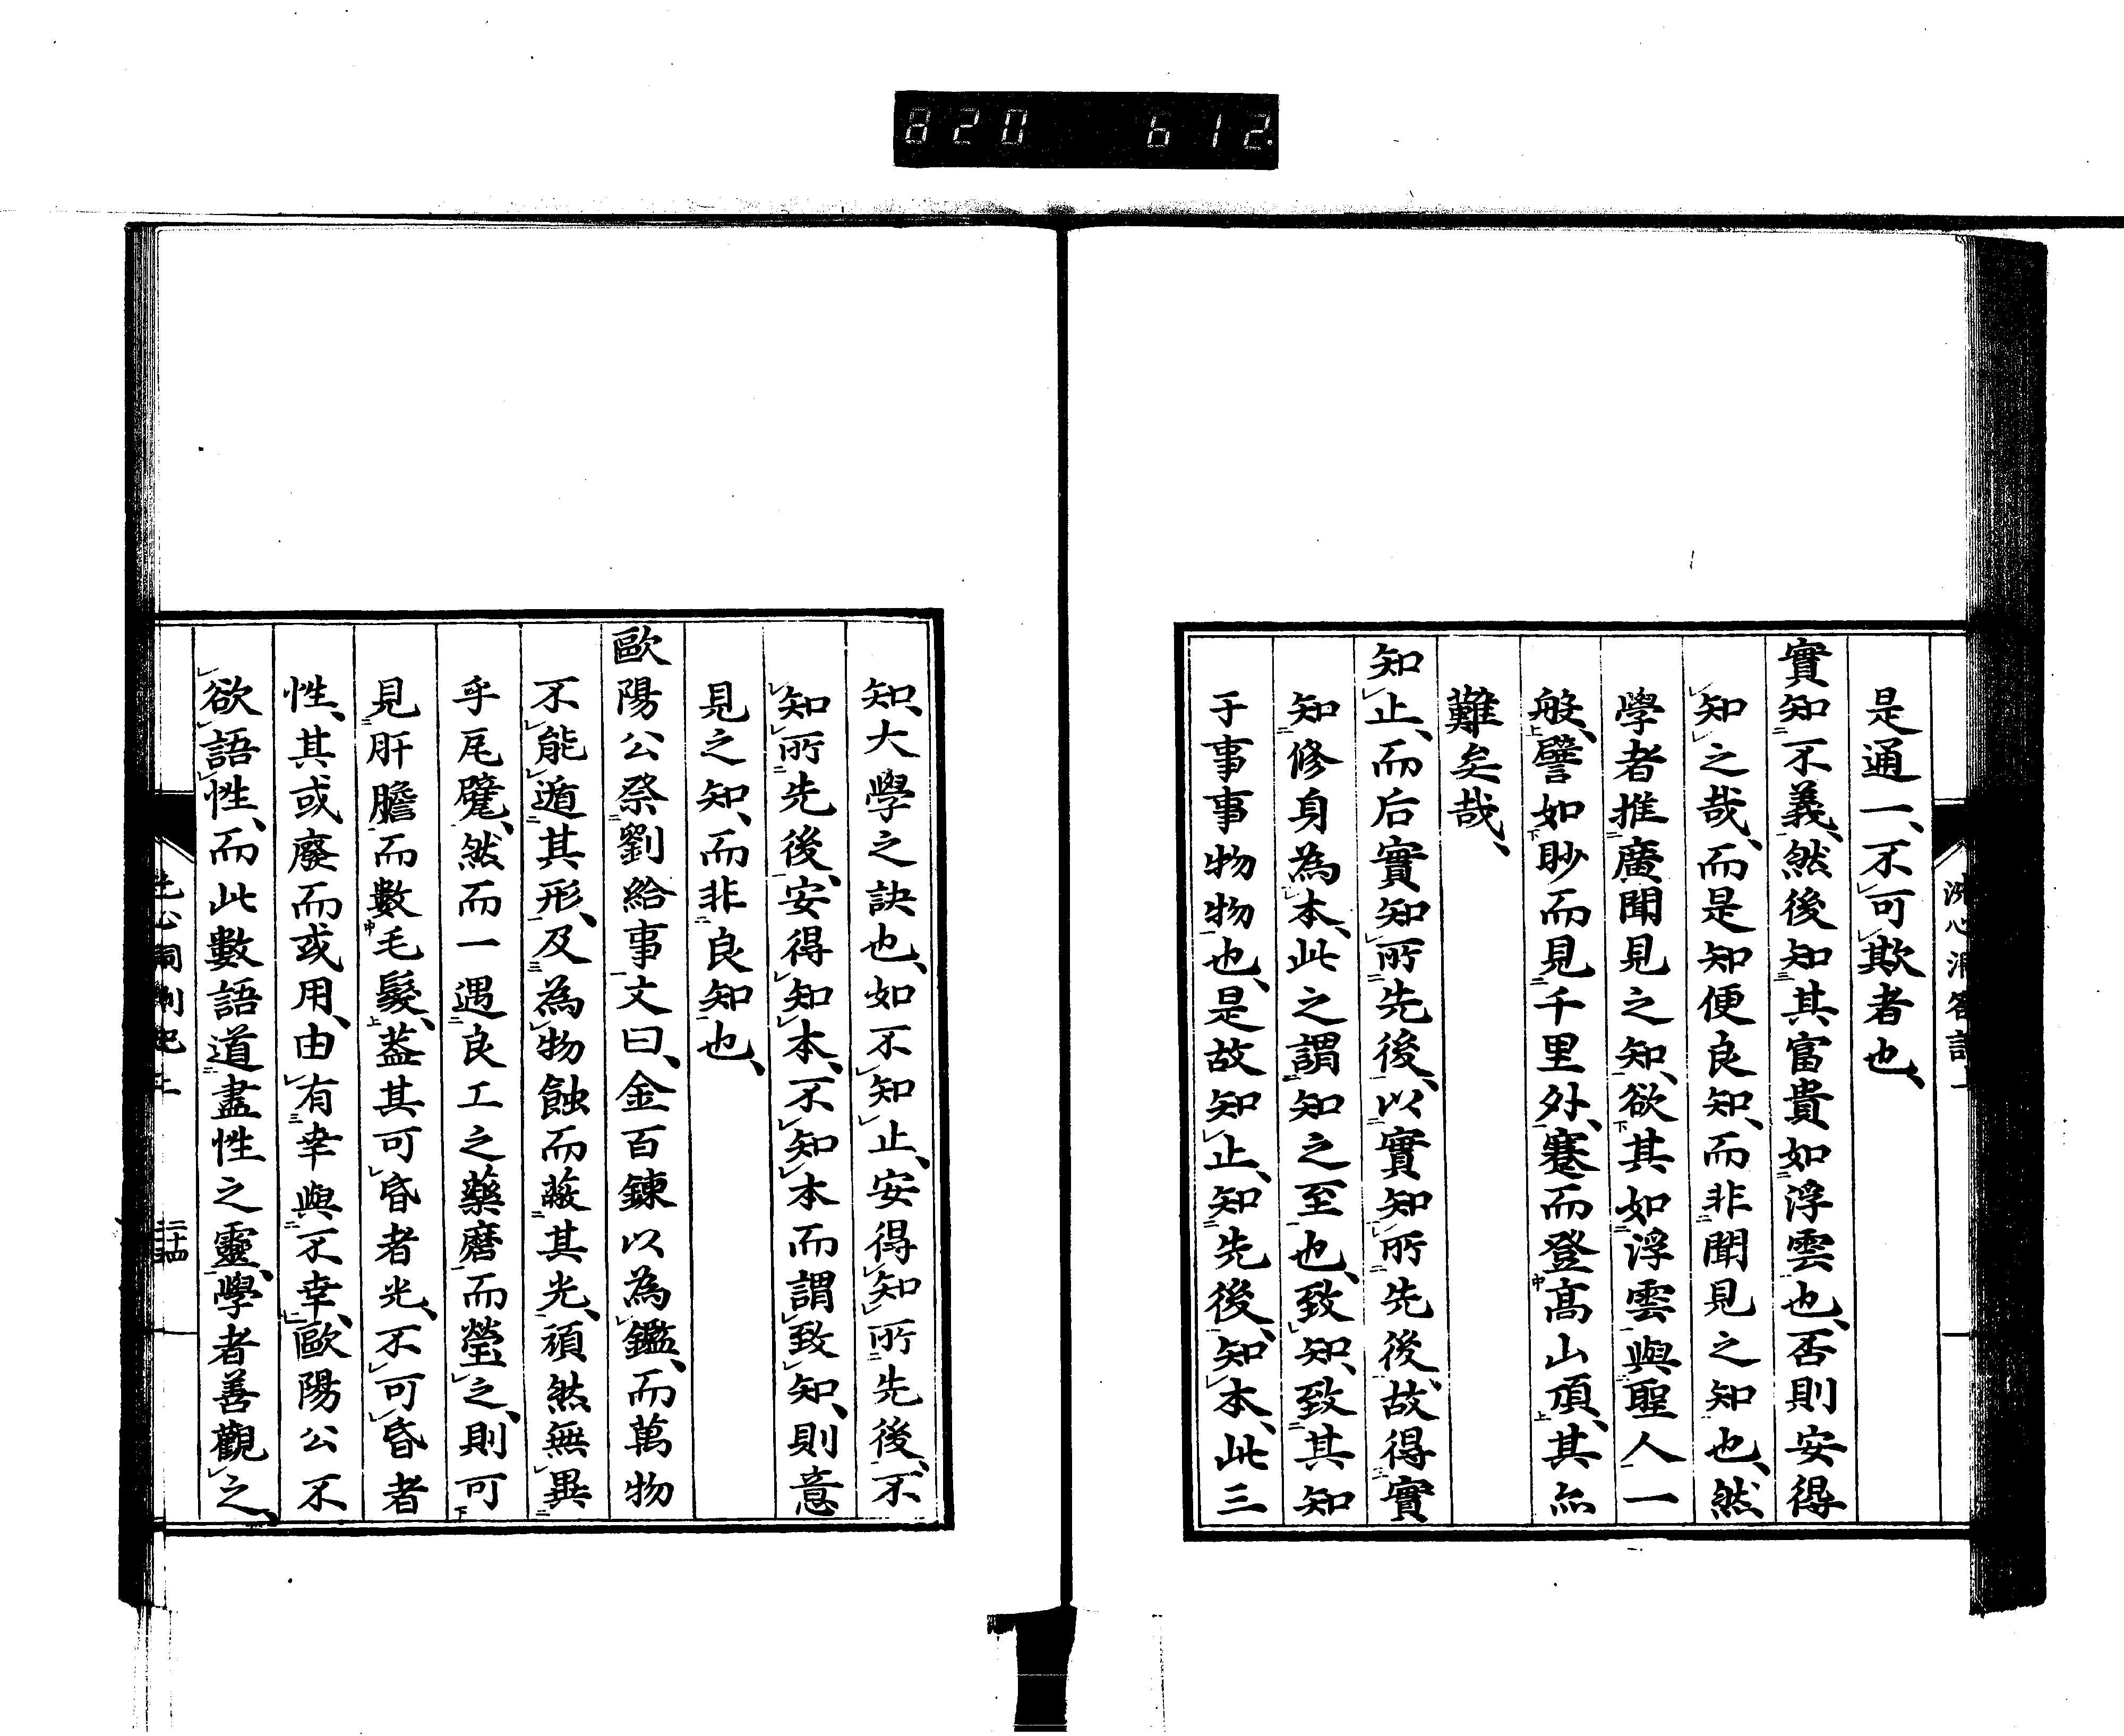 820 612.
是通一、不可欺者也、
實知不義、然後知其富貴如浮雲也、否則安得
知之哉、而是知便良知、而非聞見之知也、然
學者推廣聞見之知、欲其如浮雲與聖人一
般、譬如眇而見千里外、蹇而登髙山頂、其亦
難矣哉、
知止、而后實知所先後、以實知所先後、故得實
知修身為本、此之謂知之至也、致知、致其知
于事事物物也、是故知止、知先後、知本、此三
知、大學之訣也、如不知止、安得知所先後、不
知所先後、安得知本、不知本而謂致知、則意
見之知、而非良知也、
歐陽公祭劉給事文曰、金百鍊以為鑑、而萬物
不能遁其形、及為物蝕而蔽其光、頑然無異
乎瓦甓、然而一遇良工之藥磨而瑩之、則可
見肝膽而數毛髮、葢其可昏者光、不可昏者
性、其或廢而或用、由有幸與不幸、歐陽公不
欲語性、而此數語道盡性之靈、學者善觀之、
二十四